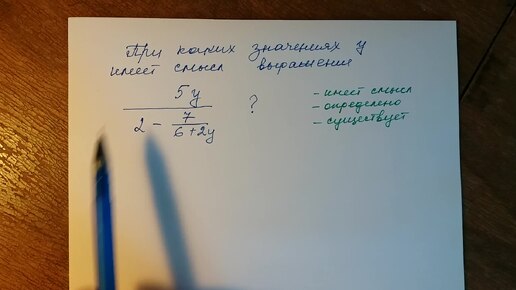 При каких значениях y
имеет смысл выражение
5y
2 - 7
6+2y
?
- имеет смысл
- определено
- существует